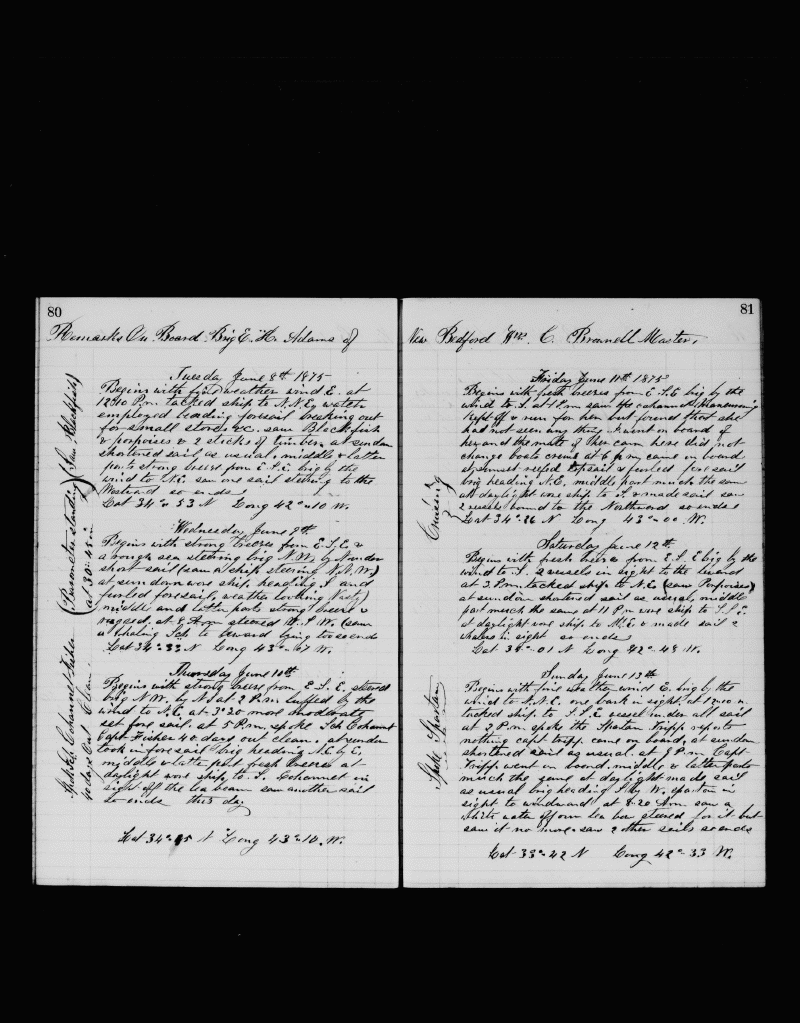 80
Remarks On Board Brig E. H. Adams of
Tuesday June 8th 1875
Begins with fine weather wind E. at
12:00 P.m tacked ship to N.N.E. watch
employed bending foresail breaking out
for small stores &c. saw Blackfish
& porpoises & 2 sticks of timber, at sundon
shortened sail as usual, middle & latter
parts strong breeze from E.S.E. brig by the
wind to N.E. saw one sail steering to the
Westward so ends
Lat 34° 53 N Long 42° 10 W.
(Saw Blackfish)
Wednesday June 9th
Begins with strong breeze from E.S.E. &
a rough sea steering brig N.W. by N under
short sail (saw a ship steering N.N.W.)
at sundown wore ship heading S and
furled foresail, weather looking nasty
middle and latter parts strong breeze &
rugged. at 8 A.m steered W.S.W. (saw
a whaling Sch to leward lying too so ends
Lat 34° 33 N Long 43° 07 W.
(Barometer standing
at 30:45 in
Thursday June 10th
Begins with strong breeze from E.S.E. steered
brig N.W. by N at 2 P.m luffed by the
wind to N.E. at 3:20 more moderate
set fore sail. at 5 P.m. spoke Sch Cohannet
Capt Fisher 40 days out clean. at sunden
took in foresail brig heading N.E. by E.
middle & latter part fresh breeze at
daylight wore ship to S. Cohannet in
sight off the lea beam saw another sail
so ends this day
Lat 34° 15 N Long 43° 10. W.
Spoke Sch Cohannet Fisher
40 days Out Clean.
81
New Bedford Wm. C. Brownell Master.
Friday June 11th 1875
Begins with fresh breeze from E.S.E. brig by the
wind to S. at 1 P.m saw the cohannet Maneuvering
kept off & run for her but found that she
had not seen any thing & went on board of
her and the mate of her cam here did not
change boats crews at 6 p.m came on board
at sunset reefed topsail & furled fore sail
brig heading N.E. middle part much the same
at daylight wore ship to S. & made sail saw
2 vessels bound to the Northward so ends
Lat 34° 26 N Long 43° 00 W.
Cruising
Saturday June 12th
Begins with fresh breeze from E.S.E brig by the
wind to S. 2 vessels in sight to the leward
at 3 P.m. tacked ship to N.E. (saw Porpoises)
at sundown shortened sail as usual, middle
part much the same at 11 P.m wore ship to S.S.E.
at daylight wore ship to N.E. & made sail 2
whalers in sight so ends
Lat 34° 01 N Long 42° 48 W.
Sunday June 13th
Begins with fine weather wind E. brig by the
wind to N.N.E. one bark in sight. at 12:00 m
tacked ship to S.S.E. vessel under all sail
at 3 P.m spoke the Spartan Tripp reports
nothing capt Tripp came on board, at sundon
shortened sail as usual at 9 P.m Capt
Tripp went on board. middle & latter parts
much the same at daylight made sail
as usual brig heading S. by W. spartan in
sight to windward at 8:20 A.m saw a
white water off our lea bow steered for it but
saw it no more. saw 2 other sails so ends
Lat 33° 42 N Long 42° 33 W.
Spoke Spartan